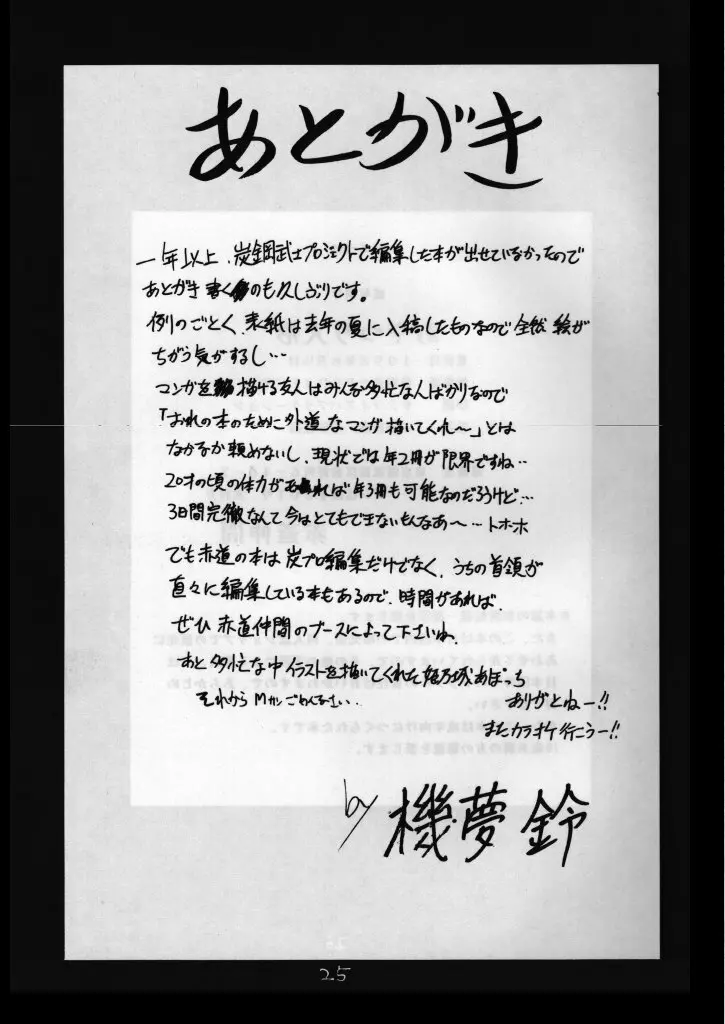 あとがき
一年以上、炭鋼武士プロジェクトで編集した本が出せていなかったので
あとがき書くのも久しぶりです。
例のごとく、表紙は去年の夏に入稿したものなので全然絵が
ちがう気がするし…
マンガを描ける友人はみんな多忙な人ばかりなので
「おれの本のために外道なマンガ描いてくれ〜」とは
なかなか頼めないし、現状では年2冊が限界ですね…
20才の頃の体力があれば年3冊も可能なのだろうけど…
3日間完徹なんて今はとてもできないもんなあ〜…トホホ
でも赤道の本は炭プロ編集だけでなく、うちの首領が
直々に編集している本もあるので、時間があれば、
ぜひ赤道仲間のブースによって下さいね。
あと多忙な中イラストを描いてくれた姫乃城あぽっち
ありがとねー!!
それからMカンごめんなさい.
またカラオケ行こうー!!
by 機夢鈴
25